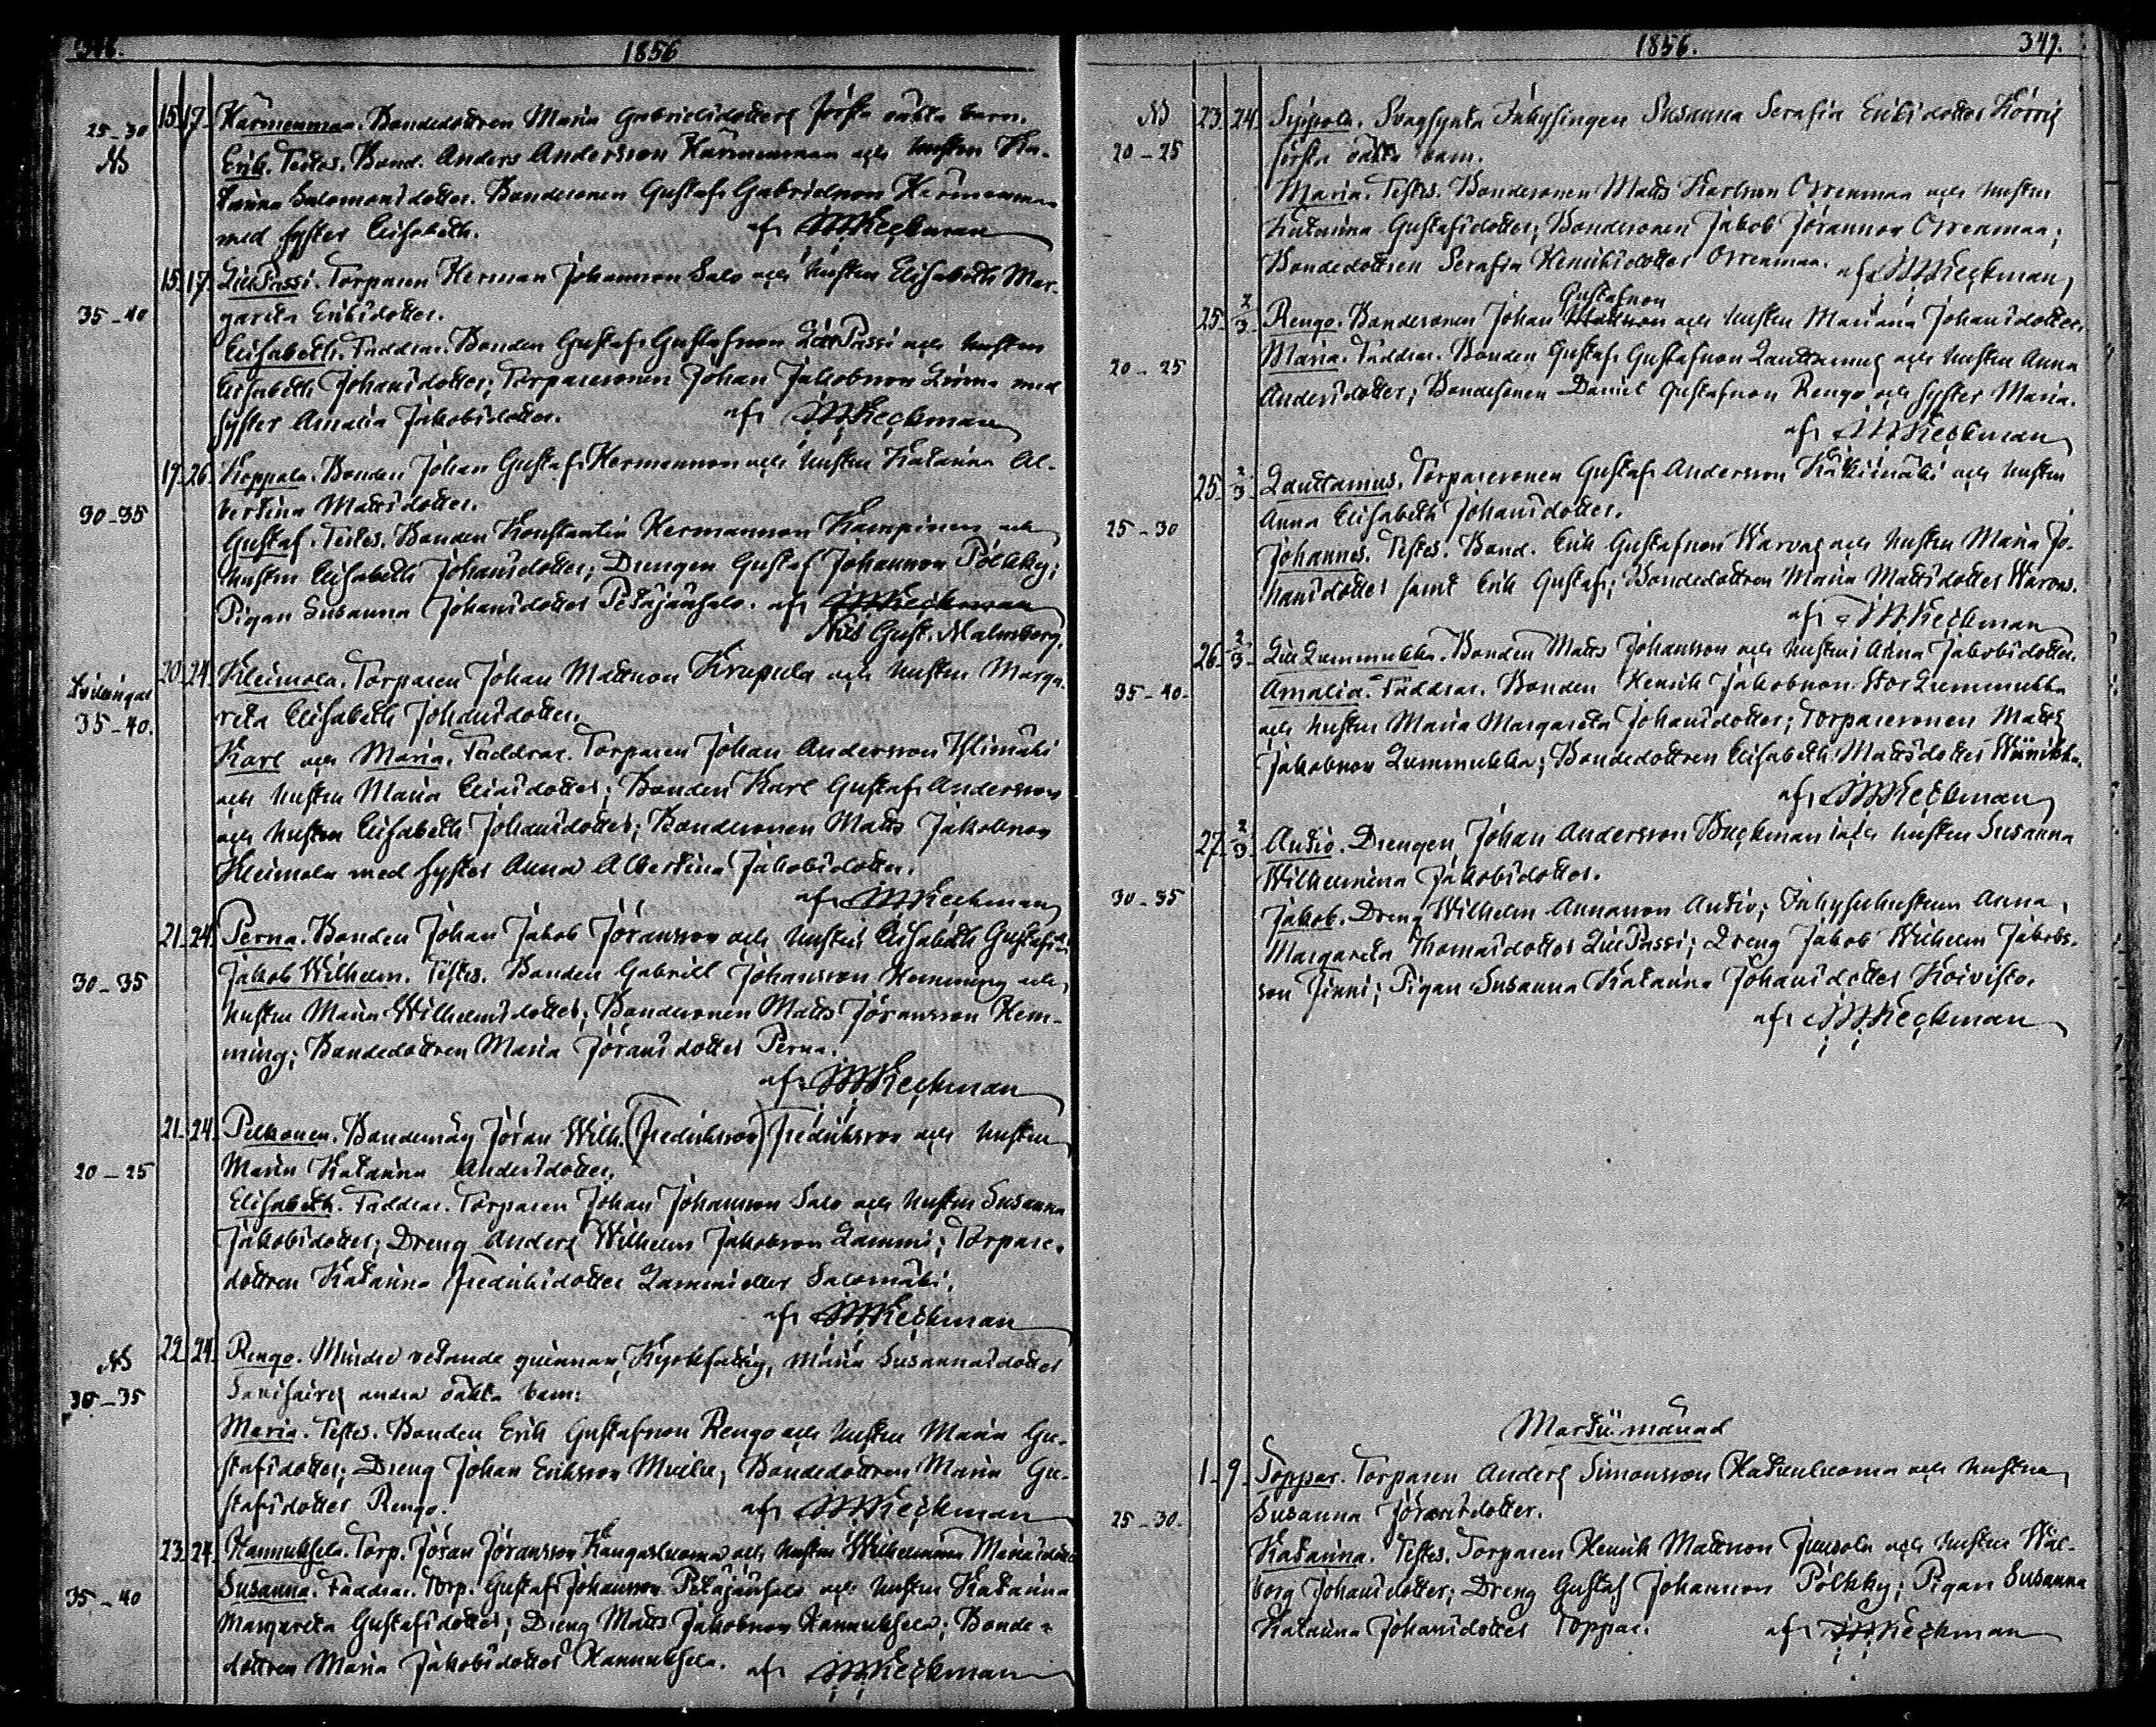 346. 1856
25-30 15. 17. Härmenmaa. Bondedottren Maria Gabrielsdotters första oäkta barn.
NB Erik. Testes. Bond. Anders Andersson Härmenmaa och hustru Ka-
tarina Salomonsdotter. Bondesonen Gustaf Gabrielsson Härmenmaa
med syster Elisabeth. af MKeckman
15. 17. LillPassi. Torparen Herman Johansson Salo och hustru Elisabeth Mar-
35-40 gareta Eriksdotter.
Elisabeth. Faddrar. Bonden Gustaf Gustafsson LillPassi och hustru
Elisabeth Johansdotter; Torparesonen Johan Jakobsson med
syster Amalia Jakobsdotter. af MKeckman
17. 26. Koppala. Bonden Johan Gustaf Hermansson och hustru Katarina Al-
30-35 bertina Mattsdotter.
Gustaf. Testes. Bonden Konstantin Hermansson Kampinen och
hustru Elisabeth Johansdotter; Drengen Gustaf Johansson Pölkky;
Pigan Susanna Johansdotter Petäjäsalo. af MKeckman
Nils Gust. Malmberg.
Tvilingar 20. 24. Kleimola. Torparen Johan Mattsson Krapula och hustru Marga-
35-40. reta Elisabeth Johansdotter.
Karl och Maria. Faddrar. Torparen Johan Andersson
och hustru Maria Eliasdotter; Bonden Karl Gustaf Andersson
och hustru Elisabeth Johansdotter; Bondesonen Matts Jakobsson
Kleimola med syster Anna Albertina Jakobsdotter.
af MKeckman
21. 24. Perna. Bonden Johan Jakob Jöransson och hustru Elisabeth Gustafsd:r
30-35 Jakob Wilhelm. Testes. Bonden Gabriel Johansson Hemming och
hustru Maria Wilhelmsdotter; Bondesonen Matts Jöransson Hem-
ming; Bondedottren Maria Jöransdotter Perna.
af MKeckman
21. 24. Pelkonen. Bondemåg Jöran Wilh. (Fredriksson) Fredriksson och hustru
20-25 Maria Katarina Andersdotter.
Elisabeth. Faddrar. Torparen Johan Johansson Salo och hustru Susanna
Jakobsdotter; Dreng Anders Wilhelm Jakobsson Lammi; Torpare-
dottren Katarina Fredriksdotter Lammi eller Salomäki.
af MKeckman
NB 22. 24. Rengo. Mindre vetande qvinnan, Maria Susannasdotter
30-35 andra oäkta barn:
Maria. Testes. Bonden Erik Gustafsson Rengo och hustru Maria Gu-
stafsdotter; Dreng Johan Eriksson Bondedottren Maria Gu-
stafsdotter Rengo. af MKeckman
23. 24. Hannuksela. Torp. Jöran Jöransson Kangasluoma och hustru Wilhelmina Mariasdotter
35-40 Susanna. Faddrar. Torp. Gustaf Johansson Petäjäsalo och hustru Katarina
Margareta Gustafsdotter; Dreng Matts Jakobsson Hannuksela; Bonde-
dottren Maria Jakobsdotter Hannuksela. af MKeckman
1856. 347.
NB 23. 24. Sippola. Svagsynta Inhysingen Susanna Serafia Eriksdotter
20-25 första oäkta barn.
Maria. Testes. Bondesonen Matts Karlsson Orrenmaa och hustru
Katarina Gustafsdotter; Bondesonen Jakob Jöransson Orrenmaa;
Bondedottren Serafia Henriksdotter Orrenmaa. af MKeckman
Gustafsson
25. 2/3 Rengo. Bondesonen Johan Mattsson och hustru Mariana Johansdotter.
20-25 Maria. Faddrar. Bonden Gustaf Gustafsson Lauttamus och hustru Anna
Andersdotter; Bondesonen Daniel Gustafsson Rengo och syster Maria.
af MKeckman
25. 2/3 Lauttamus. Torparesonen Gustaf Andersson och hustru
25-30 Anna Elisabeth Johansdotter.
Johannes. Testes. Bond. Erik Gustafsson Warvas och hustru Maria Jo-
hansdotter samt Erik Gustaf; Bondedottren Maria Mattsdotter Warvas.
af MKeckman
26. 2/3 Lill Lummukka. Bonden Matts Johansson och hustru Anna Jakobsdotter.
35-40. Amalia. Faddrar. Bonden Henrik Jakobsson StorLummukka
och hustru Maria Margareta Johansdotter; Torparesonen Matts
Jakobsson Lummukka; Bondedottren Elisabeth Mattsdotter
af MKeckman
27. 2/3 Autio. Drengen Johan Andersson Backman och hustru Susanna
30-35 Wilhelmina Jakobsdotter.
Jakob. Dreng Wilhelm Annasson Autio; Inhyseshustrun Anna
Margareta Thomasdotter LillPassi; Dreng Jakob Wilhelm Jakobs-
son Finni; Pigan Susanna Katarina Johansdotter Koivisto.
af MKeckman
Martii månad
1. 9. Toppar. Torparen Anders Simonsson och hustru
25-30. Susanna Jöransdotter.
Katarina. Testes. Torparen Henrik Mattsson Jussola och hustru Wal-
borg Johansdotter; Dreng Gustaf Johansson Pölkky; Pigan Susanna
Katarina Johansdotter Toppar. af MKeckman